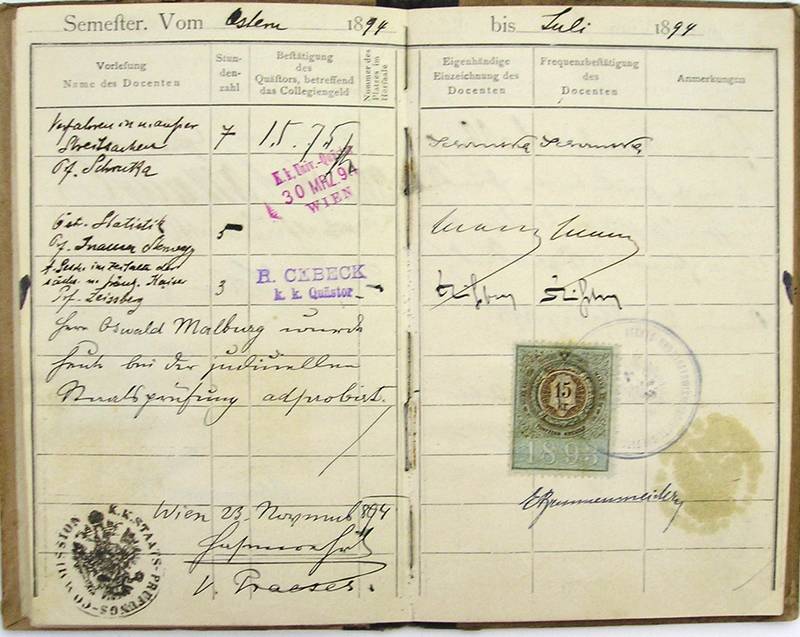 Semester. Vom Ostern 1894
bis Juli 1894
Vorlesung
Name des Docenten
Stun-
den-
zahl
Bestätigung
des
Quästors, betreffend
das Collegiengeld
Nummer des
Platzes im
Hörsaale
Eigenhändige
Einzeichnung des
Docenten
Frequenzbestätigung
des
Docenten
Anmerkungen
Verfahren in u. außer
Streitsachen
Pf. Schrutka
7
15.75
K.k. Univ.-Quästur
30 MRZ. 94
WIEN
Schrutka Schrutka
Öst. Statistik
Pf. Inama Sternegg
5
Kaiser
Pf. Zeissberg
3
R. CEBECK
k. k. Quästor
Herr Oswald Malburg wurde
heute bei der judiciellen
Staatsprüfung adprobirt.
15
KR.
1893
Wien 23. November 1894
V. Praeses.
K.K. STAATS-PRÜFUNGS-COMMISSION